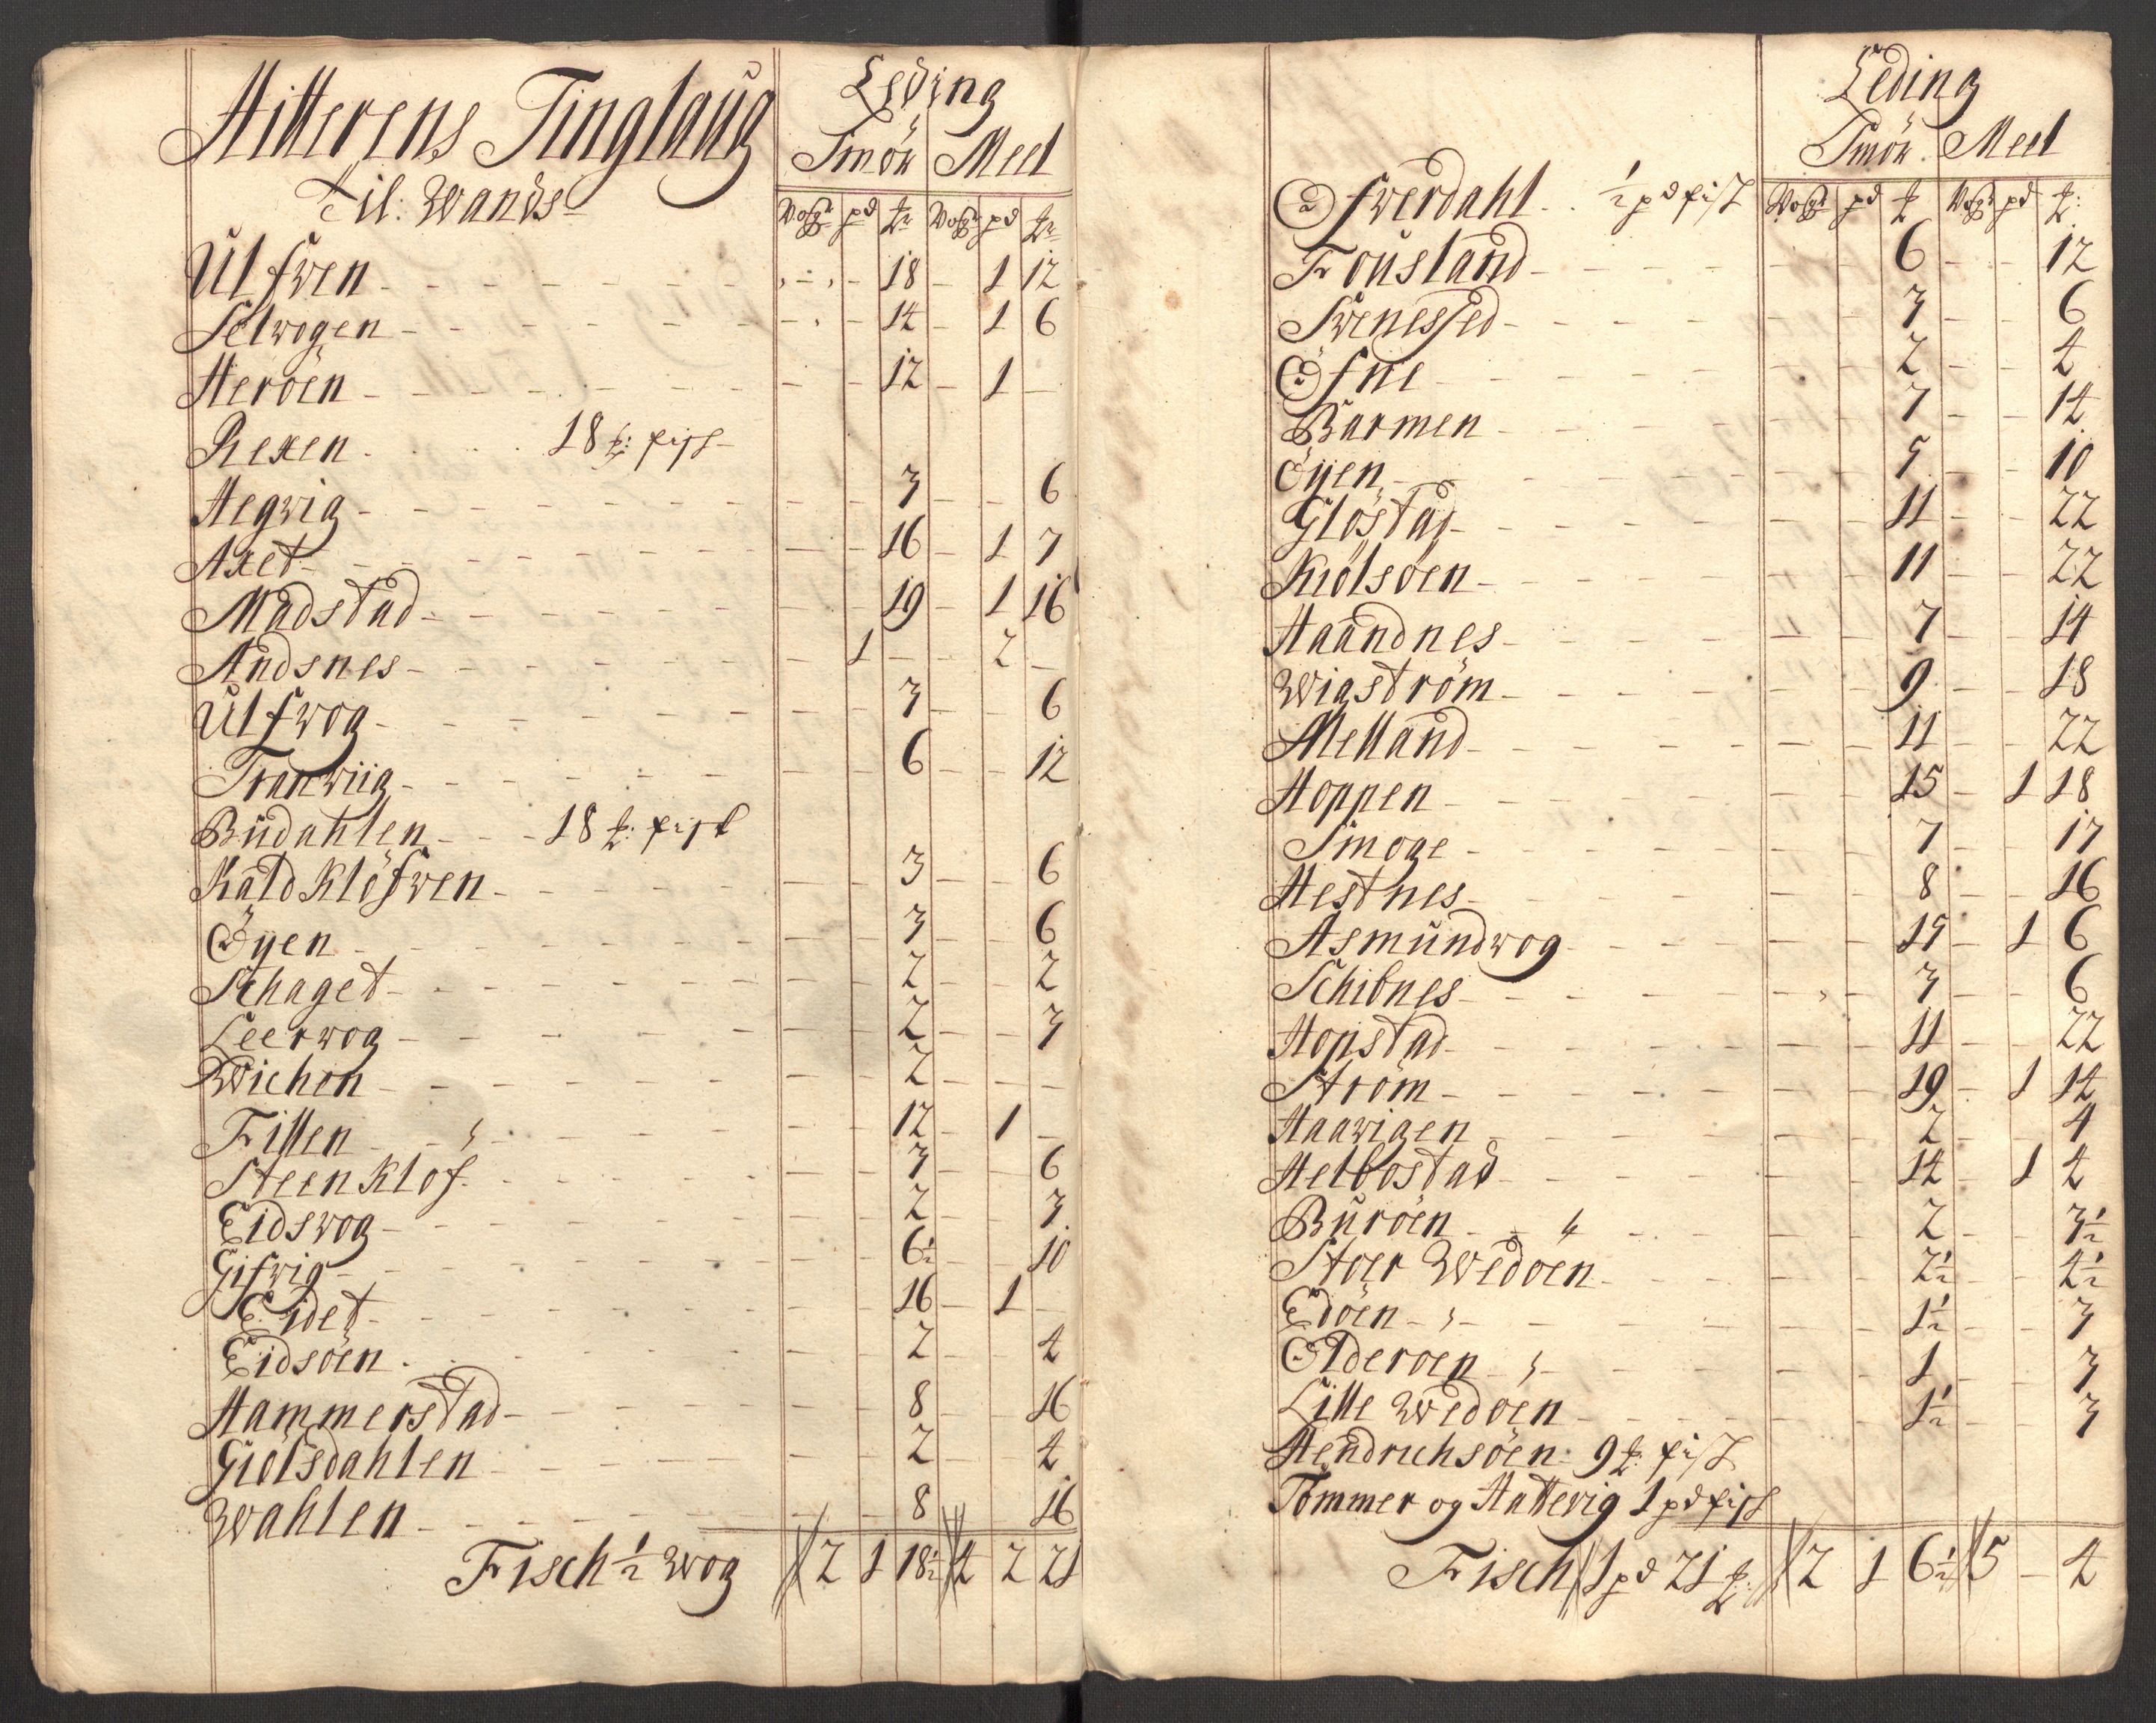 Hitterens Tinglaug
Leding
Til: Wands
Smör Meel
Wog pd ℔ Wog pd ℔
Ulfwen - 18 - 1 12
Selwogen - 14 - 1 6
Heröen - 12 - 1 -
Rexen 18 ℔: fisk
Hegwig - 3 - 6
Axet - 16 - 1 7
Madstad - 19 - 1 16
Andsnes - 1 - 2 -
Ulfwog - 3 - 6
Tranwiig - 6 - 12
Budahlen - 18 ℔: fisk
Kaldklöfwen - 3 - 6
Öyen - 3 - 6
Schaget - 2 - 2
Leerwog - 2 - 3
Wichon - 2 - -
Fillen - 12 - 1 -
Steenklof - 3 - 6
Eidswog - 2 - 3
Gifwig - 6½ - 10
Eidet - 16 - 1 -
Eidsöen - 2 - 4
Hammerstad - 8 - 16
Giölsdahlen - 2 - 4
Wahlen - 8 - 16
Fisch ½ Wog 2 1 18½ 4 2 21
Leding
Smör Meel
Öfwerdahl ½ pd fisk Wog pd ℔ Wog pd ℔:
Fousland - 6 - 12
Swenessed - 3 - 6
Öfne - 2 - 4
Barmen - 7 - 14
Öyen - 5 - 10
Glöstad - 11 - 22
Kiölsöen - 11 - 22
Haandnes - 7 - 14
Wigström - 9 - 18
Melland - 11 - 22
Hoppen - 15 - 1 18
Smoge - 7 - 17
Hestnes - 8 - 16
Asmundwog - 15 - 1 6
Schibnes - 3 - 6
Hopstad - 11 - 22
Ström - 19 - 1 14
Haawigen - 2 - 4
Helbostad - 14 - 1 4
Buröen - 2 - 3½
Stoer Wedöen - 2½ - 4½
Edöen - 1½ - 3
Olderöen - 1 - 3
Lille Wedöen - 1½ - 3
Hendrichsöen: 9 ℔: fisk
Tömmer og Hattevig 1 pd fisk
Fisch 1 pd 21 ℔: 2 1 6½ 5 - 4